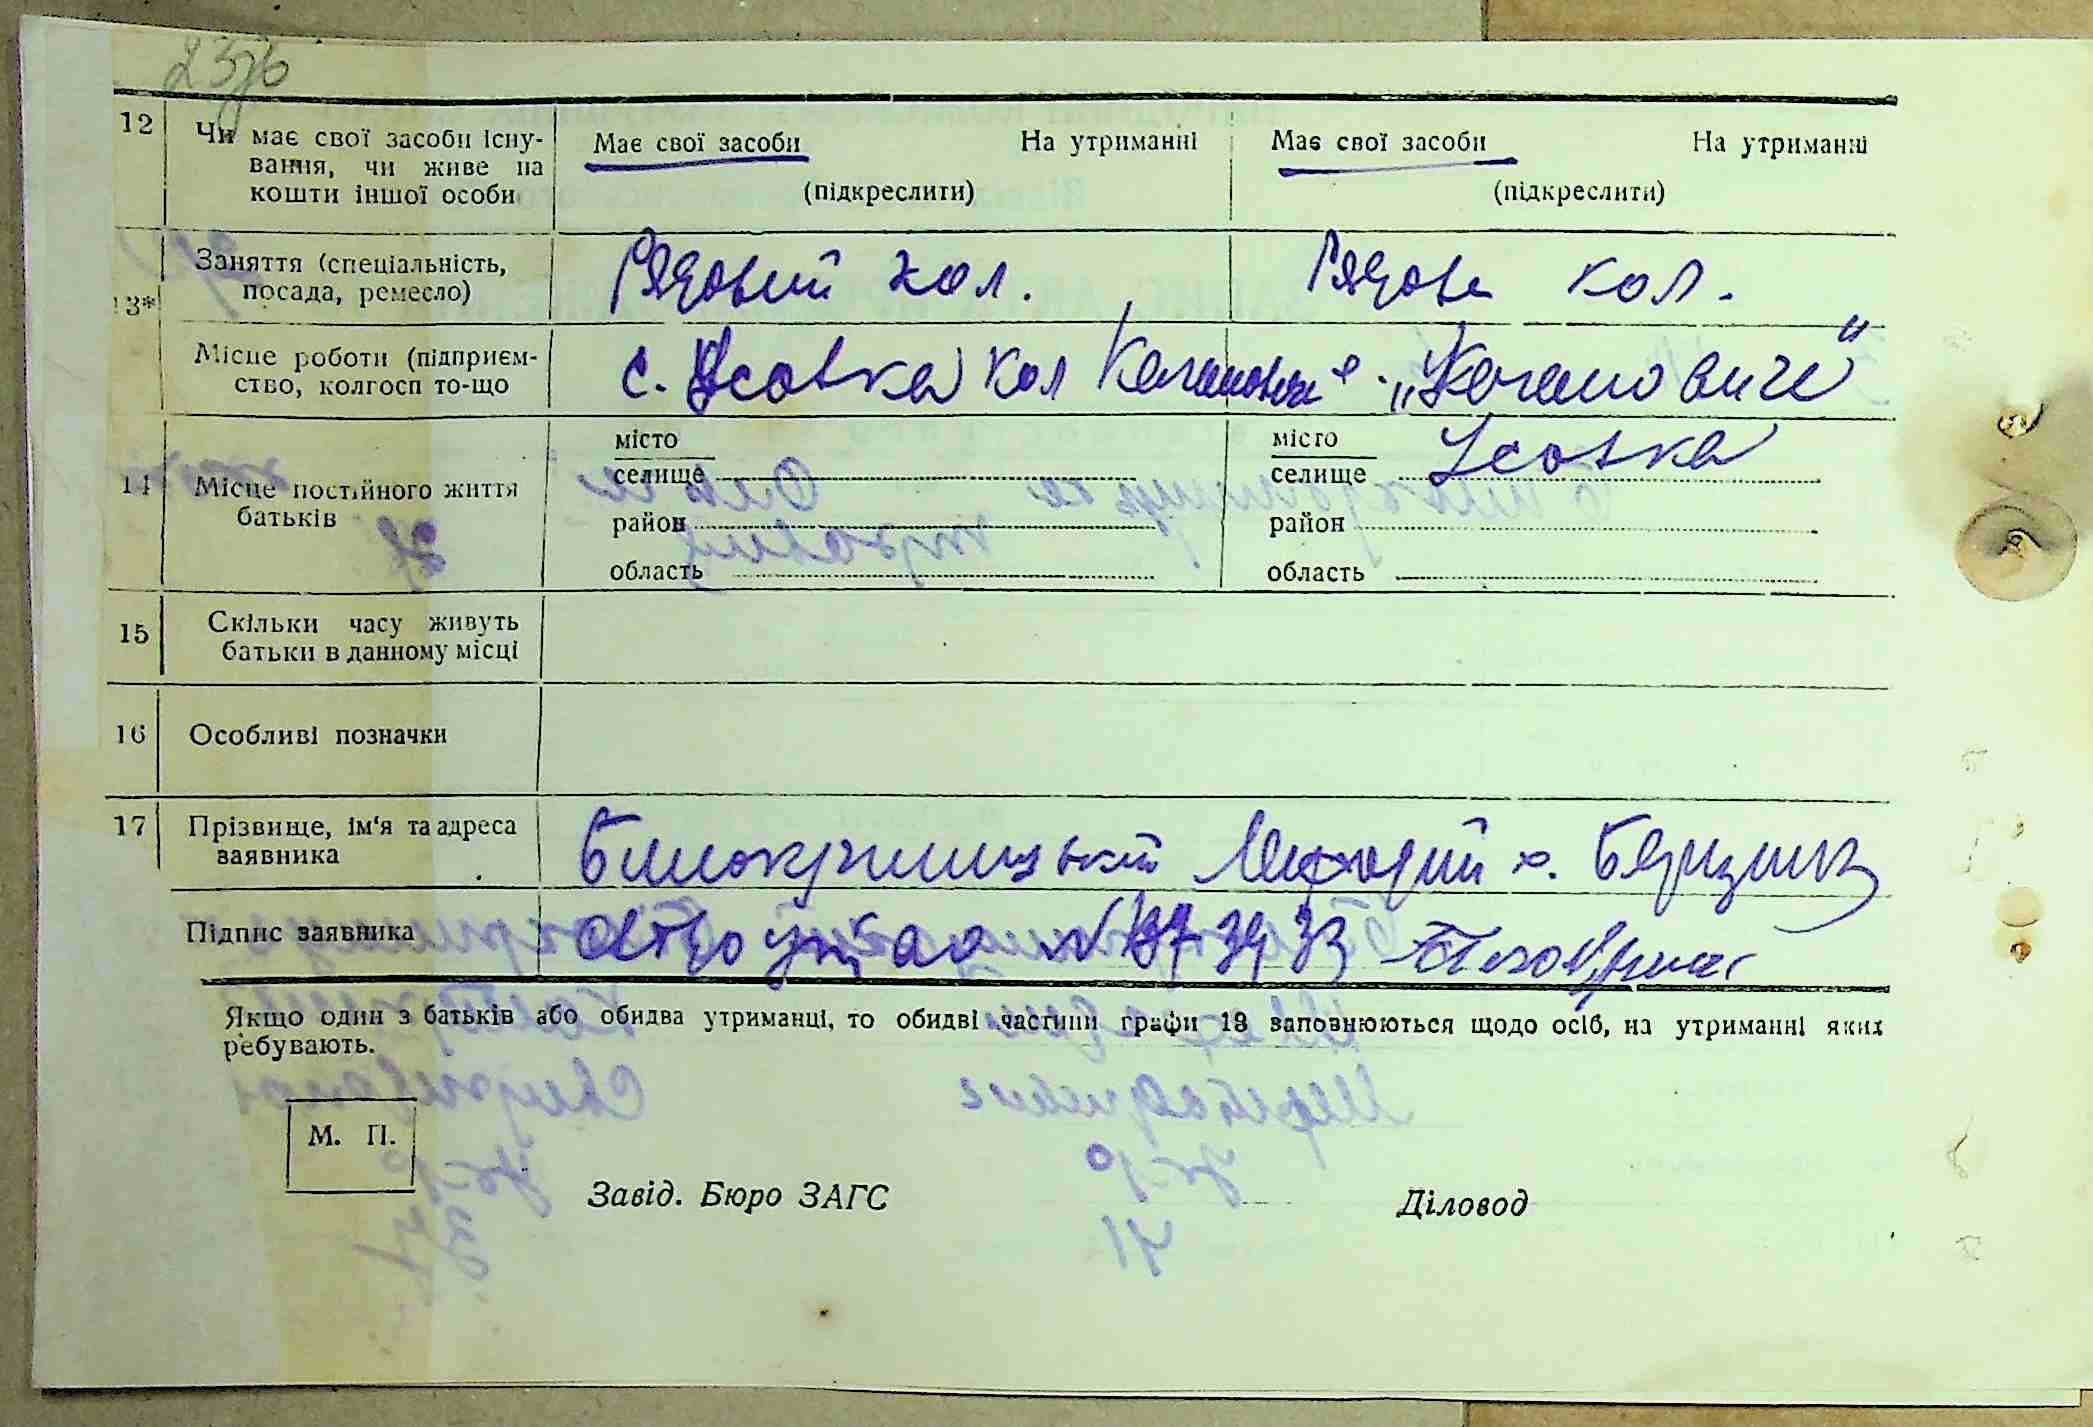 12 Чи має свої засоби існу-
вання, чи живе на
кошти іншої особи
Має свої засоби На утриманні
(підкреслити)
Має свої засоби На утриманні
(підкреслити)
13* Заняття (спеціальність,
посада, ремесло)
Рядовий кол.
Рядова кол.
Місце роботи (підприєм-
ство, колгосп то-що
с. Усовка кол Кагановича
„Кагановича"
14 Місце постійного життя
батьків
місто
селище
район
область
місто
селище Усовка
район
область
15 Скільки часу живуть
батьки в данному місці
16 Особливі позначки
17 Прізвище, ім'я та адреса
заявника
Білокриницький Мефодий х.
Підпис заявника
№ 3933
Якщо один з батьків або обидва утриманці, то обидві частини графи 13 заповнюються щодо осіб, на утриманні яких
ребувають.
М. П.
Завід. Бюро ЗАГС Діловод